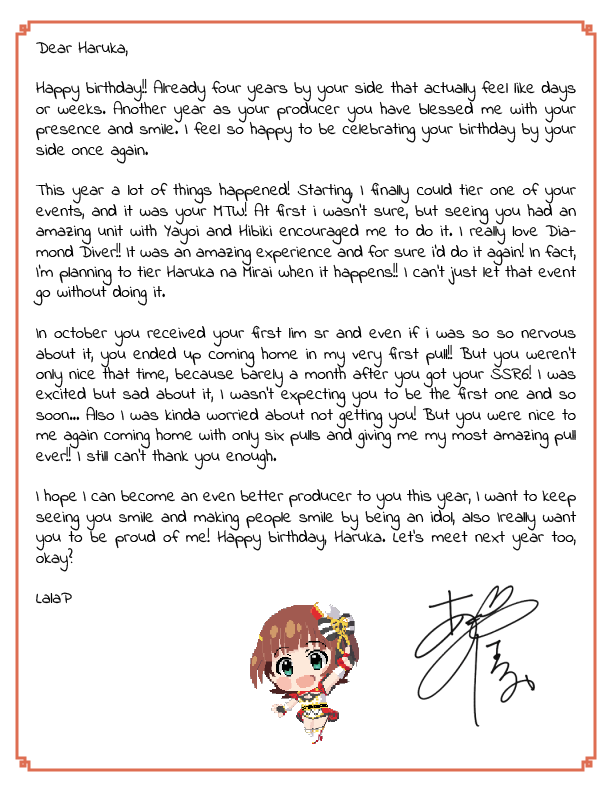 Dear Haruka,
Happy birthday!! Already four years by your side that actually feel like days
or weeks. Another year as your producer you have blessed me with your
presence and smile. I feel so happy to be celebrating your birthday by your
side once again.
This year a lot of things happened! Starting, I finally could tier one of your
events, and it was your MTW! At first i wasn't sure, but seeing you had an
amazing unit with Yayoi and Hibiki encouraged me to do it. I really love Dia-
mond Diver!! It was an amazing experience and for sure i'd do it again! In fact,
i'm planning to tier Haruka na Mirai when it happens!! I can't just let that event
go without doing it.
In october you received your first lim sr and even if i was so so nervous
about it, you ended up coming home in my very first pull!! But you weren't
only nice that time, because barely a month after you got your SSR6! I was
excited but sad about it, I wasn't expecting you to be the first one and so
soon... Also I was kinda worried about not getting you! But you were nice to
me again coming home with only six pulls and giving me my most amazing pull
ever!! I still can't thank you enough.
I hope I can become an even better producer to you this year, I want to keep
seeing you smile and making people smile by being an idol, also Ireally want
you to be proud of me! Happy birthday, Haruka. Let's meet next year too,
okay?
LalaP